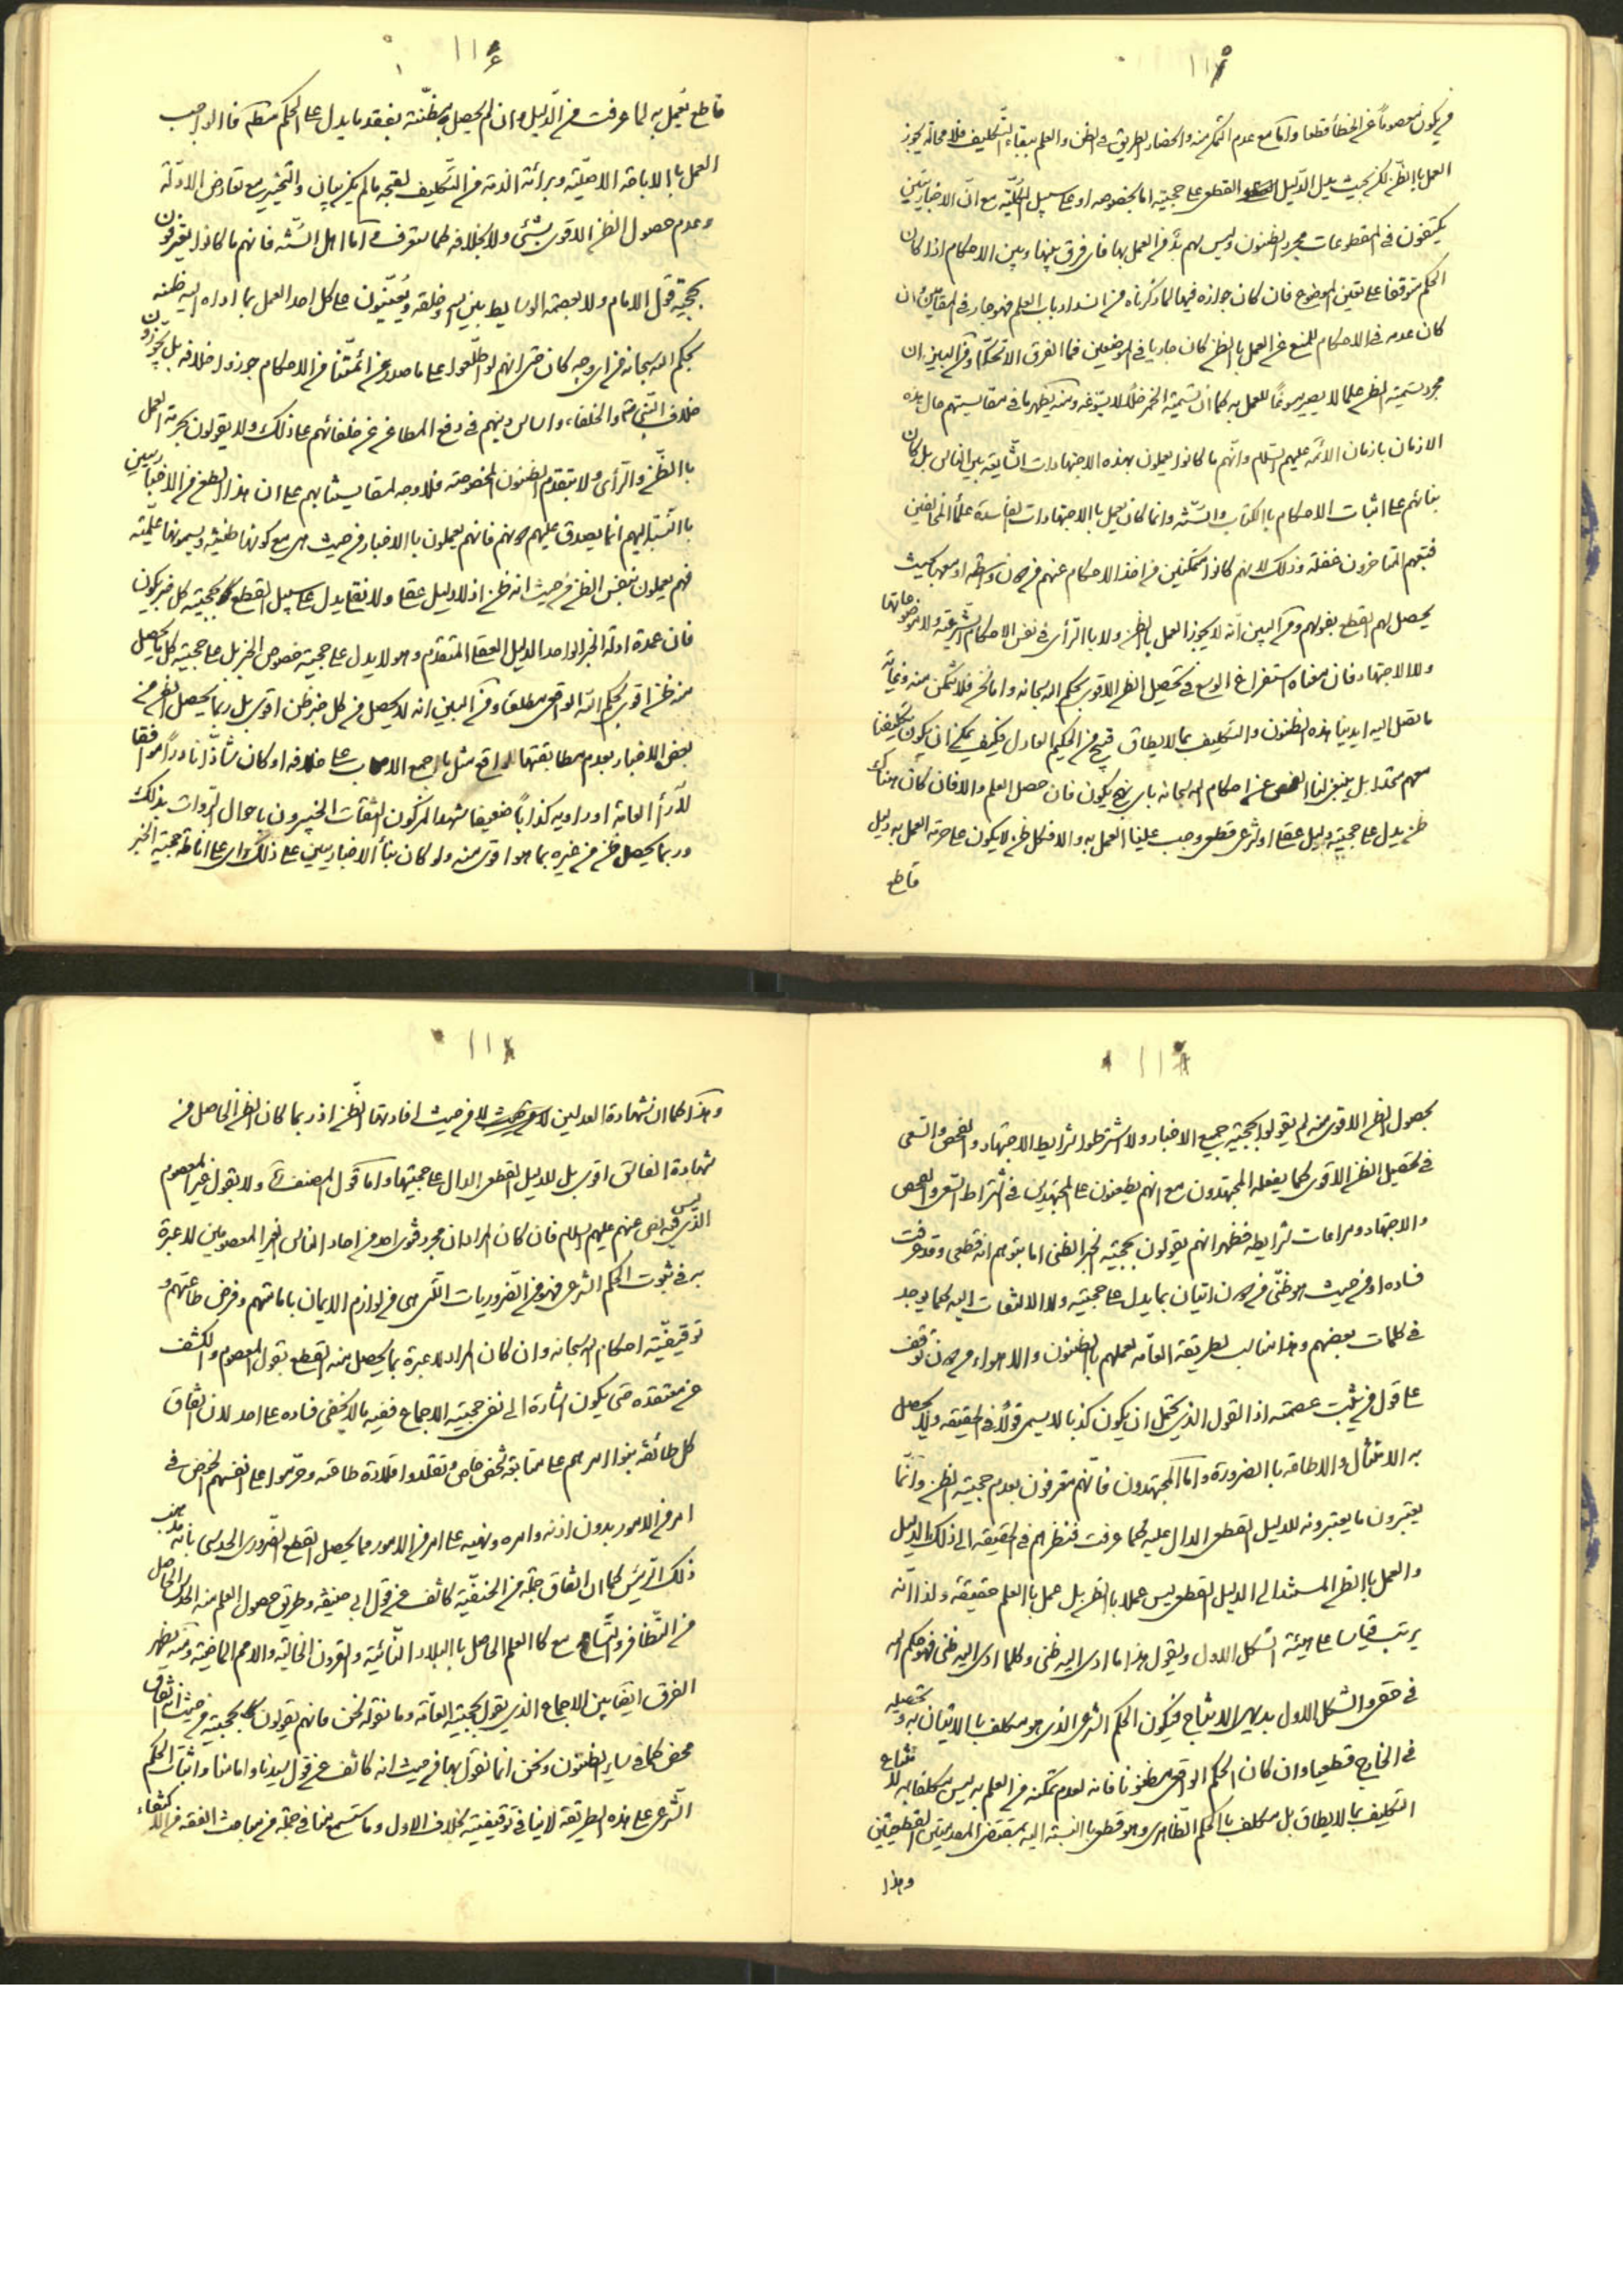 ١١٥
من يكون معصوماً عن الخطأ قطعا واما مع عدم التمكن منه وانحصار الطريق في الظن والعلم ببقاء التكليف فلا محالة يجوز
العمل بالظن لكن بحيث يدل الدليل القطعى على حجيته اما بخصوصه او على سبيل الكلية مع ان الاخباريين
يكتفون في المقطوعات مجرد الظنون وليس لهم بد من العمل بها فاى فرق بينها وبين الاحكام اذا كان
الحكم متوقفا على تعيين الموضوع فان كان جوازه فيها لما ذكرناه من انسداد باب العلم فهو جار في المقامين وان
كان عدمه في الاحكام للمنع عن العمل بالظن كان جاريا في الموضعين فما الفرق الا تحكما ومن البين ان
مجرد تسمية الظن علما لا يصير مسوغا للعمل به كما ان تسمية الخمر خلاً لا يسوغه ومنه يظهر ما في مقايستهم حال هذه
الازمان بازمان الائمة عليهم السلم وانهم ما كانوا يعملون بهذه الاجتهادات الشايعة بين الناس بل كان
بنائهم على اثبات الاحكام بالكتاب والسنة وانما كان يعمل بالاجتهادات الفاسدة علماء المخالفين
فتبعهم المتاخرون غفلة وذلك لانهم كانوا متمكنين من اخذ الاحكام عنهم من دون واسطة او معها بحيث
يحصل لهم القطع بقولهم ومن البين انه لا يجوز العمل بالظن ولا بالرأى في نفس الاحكام الشرعية ولا موضوعاتها
ولا الاجتهاد فان معناه استفراغ الوسع في تحصيل الظن الاقوى بحكم الله سبحانه واما نحن فلا نتمكن منه وغاية
ما تصل اليه ايدينا هذه الظنون والتكليف بما لا يطاق قبيح من الحكيم العادل فكيف يمكن ان يكون تكليفنا
معهم متحدا بل ينبغى لنا الفحص عن احكام الله سبحانه باى نهج يكون فان حصل العلم والا فان كان هناك
ظن يدل على حجيته دليل عقلى او شرعى قطعى وجب علينا العمل به والا فكل ظن لا يكون على حرمة العمل به دليل
قاطع
١١٦
قاطع يعمل به لما عرفت من الدليل وان لم يحصل مظنة بفقد ما يدل على الحكم مطلقا فالواجب
العمل بالاباحة الاصلية وبرائة الذمة من التكليف لقبحه ما لم يكن بيان والتخيير مع تعارض الادلة
وعدم حصول الظن الاقوى بشئ ولا بخلافه كما ستعرف واما اهل السنة فانهم ما كانوا يعترفون
بحجية قول الامام ولا بعصمة الوسايط بين الله وخلقه ويعينون على كل احد العمل بما اداه اليه ظنه
بحكم الله سبحانه من اى وجه كان حتى انهم لو اطلعوا على ما صدر عن ائمتنا من الاحكام جوزوا خلافه بل يجوزون
خلاف النبى والخلفاء واساس دينهم في دفع المطاعن عن خلفائهم على ذلك ولا يقولون بحرمة العمل
بالظن والرأى ولا بتقدم الظنون المخصوصة فلا وجه لمقايستنا بهم على ان هذا الطعن من الاخباريين
بالنسبة اليهم انما يصدق عليهم لانهم فانهم يعملون بالاخبار من حيث هى مع كونها ظنية ويسمونها علمية
فهم يعملون بنفس الظن من حيث انه ظن اذ لا دليل عقلى ولا نقلى يدل على سبيل القطع بحجية كل خبر يكون
فان عمدة ادلة الخبر الواحد الدليل العقلى المتقدم وهو لا يدل على حجية خصوص الخبر بل على حجية كل ما يحصل
منه ظن اقوى بحكم الله الواقعى مطلقا ومن البين انه لا يحصل من كل خبر ظن اقوى بل ربما يحصل الظن من
بعض الاخبار بعدم مطابقتها للواقع مثل ما اجمع الاصحاب على خلافه او كان شاذا نادراً موافقا
لآراء العامة او راويه كذاباً ضعيفا شهد المزكون الثقات الخبيرون باحوال الروات بذلك
وربما يحصل ظن من غيره بما هو اقوى منه ولو كان بناء الاخباريين على ذلك واى على اناطة حجية الخبر
١١٧
بحصول الظن الاقوى منه لم يقولوا بحجية جميع الاخبار ولا اشترطوا شرايط الاجتهاد والفحص والسعى
في تحصيل الظن الاقوى كما يفعله المجتهدون مع انهم يطعنون على المجتهدين في اشتراط السعى والفحص
والاجتهاد ومراعات شرايطه فظهر انهم يقولون بحجية الخبر الظنى اما بتوهم انه قطعى وقد عرفت
فساده او من حيث هو ظنى من دون اتيان بما يدل على حجيته ولا الالتفات اليه كما يوجد
في كلمات بعضهم وهذا مناسب لطريقة العامة لعملهم بالظنون والاهواء من دون توقف
على قول من ثبت عصمته اذ القول الذى يحتمل ان يكون كذبا لا يسمى قولاً في الحقيقة ولا يحصل
به الامتثال والاطاعة بالضرورة واما المجتهدون فانهم معترفون بعدم حجية الظن وانما
يعتبرون ما يعتبرونه للدليل القطعى الدال عليه كما عرفت فنظرهم في الحقيقة الى ذلك الدليل
والعمل بالظن المستند الى الدليل القطعى ليس عملا بالظن بل عمل بالعلم حقيقة ولذا انه
يرتب قياسا على هيئة الشكل الاول ويقول هذا ما ادى اليه ظنى وكلما ادى اليه ظنى فهو حكم الله
في حقى والشكل الاول بديهى الانتاج فيكون الحكم الشرعى الذى هو مكلف بالاتيان به وتحصيله
في الخارج قطعيا وان كان الحكم الواقعى مظنونا فانه لعدم تمكنه من العلم به ليس مكلفا به لامتناع
التكليف بما لا يطاق بل مكلف بالحكم الظاهرى وهو قطعى بالنسبة اليه بمقتضى المقدمتين القطعيتين
وهذا
١١٨
وهذا كما ان شهادة العدلين لا من حيث افادتها الظن اذ ربما كان الظن الحاصل من
شهادة الفاسق اقوى بل للدليل القطعى الدال على حجيتها واما قول المصنف ولا بقول غير المعصوم
الذى ليس فيه نص عنهم عليهم السلام فان كان المراد ان مجرد فتوى احد من احاد الناس الغير المعصومين لا عبرة
به في ثبوت الحكم الشرعى فهو من الضروريات التى هى من لوازم الايمان بامامتهم وفرض طاعتهم و
توقيفية احكام الله سبحانه وان كان المراد لا عبرة بما يحصل منه القطع بقول المعصوم والكشف
عن معتقده حتى يكون اشارة الى نفى حجية الاجماع ففيه ما لا يخفى فساده على احد لان اتفاق
كل طائفة بنوا امرهم على متابعة شخص خاص وتقلدوا قلادة طاعته وحرموا على انفسهم الخوض في
امر من الامور بدون اذنه وامره ونهيه على امر من الامور مما يحصل القطع الضرورى الحدسى بانه مذهب
ذلك الرئيس كما ان اتفاق جملة من الحنفية كاشف عن قول ابى حنيفة وطريق حصول العلم منه الحدس الحاصل
من التظافر والتسامع كالعلم الحاصل بالبلاد النائية والقرون الخالية والامم الماضية ومنه يظهر
الفرق ايضا بين الاجماع الذى يقول بحجيته العامة وما نقوله نحن فانهم يقولون بحجيته من حيث انه اتفاق
محض كما في ساير الظنون ونحن انما نقول بها من حيث انه كاشف عن قول سيدنا وامامنا واثبات الحكم
الشرعى على هذه الطريقة لا ينافى توقيفيته بخلاف الاول وما ستسمع منا في جملة من مباحث الفقه من الاكتفاء